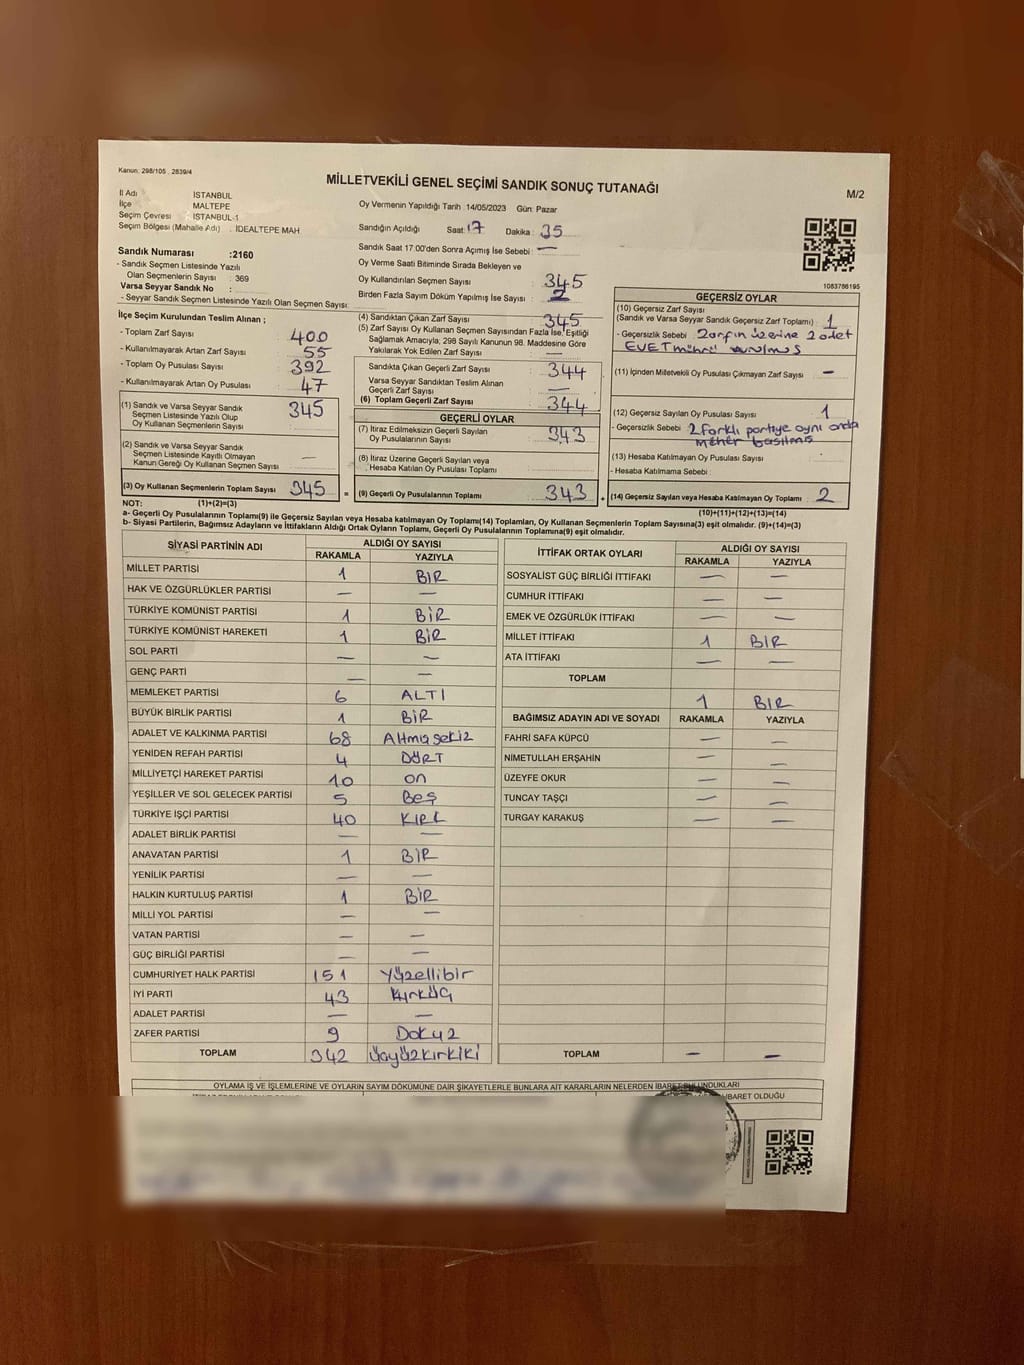 Kanun: 298/105 , 2839/4
MİLLETVEKİLİ GENEL SEÇİMİ SANDIK SONUÇ TUTANAĞI
M/2
İl Adı : İSTANBUL
İlçe : MALTEPE
Seçim Çevresi : İSTANBUL-1
Seçim Bölgesi (Mahalle Adı) : IDEALTEPE MAH
Oy Vermenin Yapıldığı Tarih :14/05/2023 Gün: Pazar
Sandığın Açıldığı Saat: 17 Dakika : 35
Sandık Saat 17.00'den Sonra Açımış İse Sebebi : —
Sandık Numarası :2160
- Sandık Seçmen Listesinde Yazılı
Olan Seçmenlerin Sayısı : 369
Varsa Seyyar Sandık No :
- Seyyar Sandık Seçmen Listesinde Yazılı Olan Seçmen Sayısı:
Oy Verme Saati Bitiminde Sırada Bekleyen ve
Oy Kullandırılan Seçmen Sayısı : 345
Birden Fazla Sayım Döküm Yapılmış İse Sayısı : 2
1083786195
İlçe Seçim Kurulundan Teslim Alınan ;
- Toplam Zarf Sayısı : 400
- Kullanılmayarak Artan Zarf Sayısı : 55
- Toplam Oy Pusulası Sayısı : 392
- Kullanılmayarak Artan Oy Pusulası : 47
(1) Sandık ve Varsa Seyyar Sandık
Seçmen Listesinde Yazılı Olup
Oy Kullanan Seçmenlerin Sayısı : 345
(2) Sandık ve Varsa Seyyar Sandık
Seçmen Listesinde Kayıtlı Olmayan
Kanun Gereği Oy Kullanan Seçmen Sayısı : —
(3) Oy Kullanan Seçmenlerin Toplam Sayısı : 345 =
(4) Sandıktan Çıkan Zarf Sayısı : 345
(5) Zarf Sayısı Oy Kullanan Seçmen Sayısından Fazla İse, Eşitliği
Sağlamak Amacıyla, 298 Sayılı Kanunun 98. Maddesine Göre
Yakılarak Yok Edilen Zarf Sayısı : —
Sandıkta Çıkan Geçerli Zarf Sayısı : 344
Varsa Seyyar Sandıktan Teslim Alınan
Geçerli Zarf Sayısı : —
(6) Toplam Geçerli Zarf Sayısı : 344
GEÇERLİ OYLAR
(7) İtiraz Edilmeksizin Geçerli Sayılan
Oy Pusulalarının Sayısı : 343
(8) İtiraz Üzerine Geçerli Sayılan veya
Hesaba Katılan Oy Pusulası Toplamı :
(9) Geçerli Oy Pusulalarının Toplamı : 343 +
GEÇERSİZ OYLAR
(10) Geçersiz Zarf Sayısı
(Sandık ve Varsa Seyyar Sandık Geçersiz Zarf Toplamı) : 1
- Geçersizlik Sebebi : Zarfın üzerine 2 adet
EVET mührü vurulmuş
(11) İçinden Milletvekili Oy Pusulası Çıkmayan Zarf Sayısı : —
(12) Geçersiz Sayılan Oy Pusulası Sayısı : 1
- Geçersizlik Sebebi : 2 farklı partiye aynı anda
mühür basılmış
(13) Hesaba Katılmayan Oy Pusulası Sayısı :
- Hesaba Katılmama Sebebi :
(14) Geçersiz Sayılan veya Hesaba Katılmayan Oy Toplamı : 2
NOT: (1)+(2)=(3)
(10)+(11)+(12)+(13)=(14)
a- Geçerli Oy Pusulalarının Toplamı(9) ile Geçersiz Sayılan veya Hesaba katılmayan Oy Toplamı(14) Toplamları, Oy Kullanan Seçmenlerin Toplam Sayısına(3) eşit olmalıdır. (9)+(14)=(3)
b- Siyasi Partilerin, Bağımsız Adayların ve İttifakların Aldığı Ortak Oyların Toplamı, Geçerli Oy Pusulalarının Toplamına(9) eşit olmalıdır.
SİYASİ PARTİNİN ADI ALDIĞI OY SAYISI
RAKAMLA YAZIYLA
MİLLET PARTİSİ 1 BİR
HAK VE ÖZGÜRLÜKLER PARTİSİ — —
TÜRKİYE KOMÜNİST PARTİSİ 1 BİR
TÜRKİYE KOMÜNİST HAREKETİ 1 BİR
SOL PARTİ — —
GENÇ PARTİ — —
MEMLEKET PARTİSİ 6 ALTI
BÜYÜK BİRLİK PARTİSİ 1 BİR
ADALET VE KALKINMA PARTİSİ 68 Altmışsekiz
YENİDEN REFAH PARTİSİ 4 DÖRT
MİLLİYETÇİ HAREKET PARTİSİ 10 on
YEŞİLLER VE SOL GELECEK PARTİSİ 5 Beş
TÜRKİYE İŞÇİ PARTİSİ 40 KIRK
ADALET BİRLİK PARTİSİ — —
ANAVATAN PARTİSİ 1 BİR
YENİLİK PARTİSİ — —
HALKIN KURTULUŞ PARTİSİ 1 BİR
MİLLİ YOL PARTİSİ — —
VATAN PARTİSİ — —
GÜÇ BİRLİĞİ PARTİSİ — —
CUMHURİYET HALK PARTİSİ 151 Yüzellibir
İYİ PARTİ 43 Kırküç
ADALET PARTİSİ — —
ZAFER PARTİSİ 9 Dokuz
TOPLAM 342 Üçyüzkırkiki
İTTİFAK ORTAK OYLARI ALDIĞI OY SAYISI
RAKAMLA YAZIYLA
SOSYALİST GÜÇ BİRLİĞİ İTTİFAKI — —
CUMHUR İTTİFAKI — —
EMEK VE ÖZGÜRLÜK İTTİFAKI — —
MİLLET İTTİFAKI 1 BİR
ATA İTTİFAKI — —
TOPLAM 1 BİR
BAĞIMSIZ ADAYIN ADI VE SOYADI RAKAMLA YAZIYLA
FAHRİ SAFA KÜPCÜ — —
NİMETULLAH ERŞAHİN — —
ÜZEYFE OKUR — —
TUNCAY TAŞÇI — —
TURGAY KARAKUŞ — —
TOPLAM — —
OYLAMA İŞ VE İŞLEMLERİNE VE OYLARIN SAYIM DÖKÜMÜNE DAİR ŞİKAYETLERLE BUNLARA AİT KARARLARIN NELERDEN İBARET BULUNDUKLARI
İBARET OLDUĞU